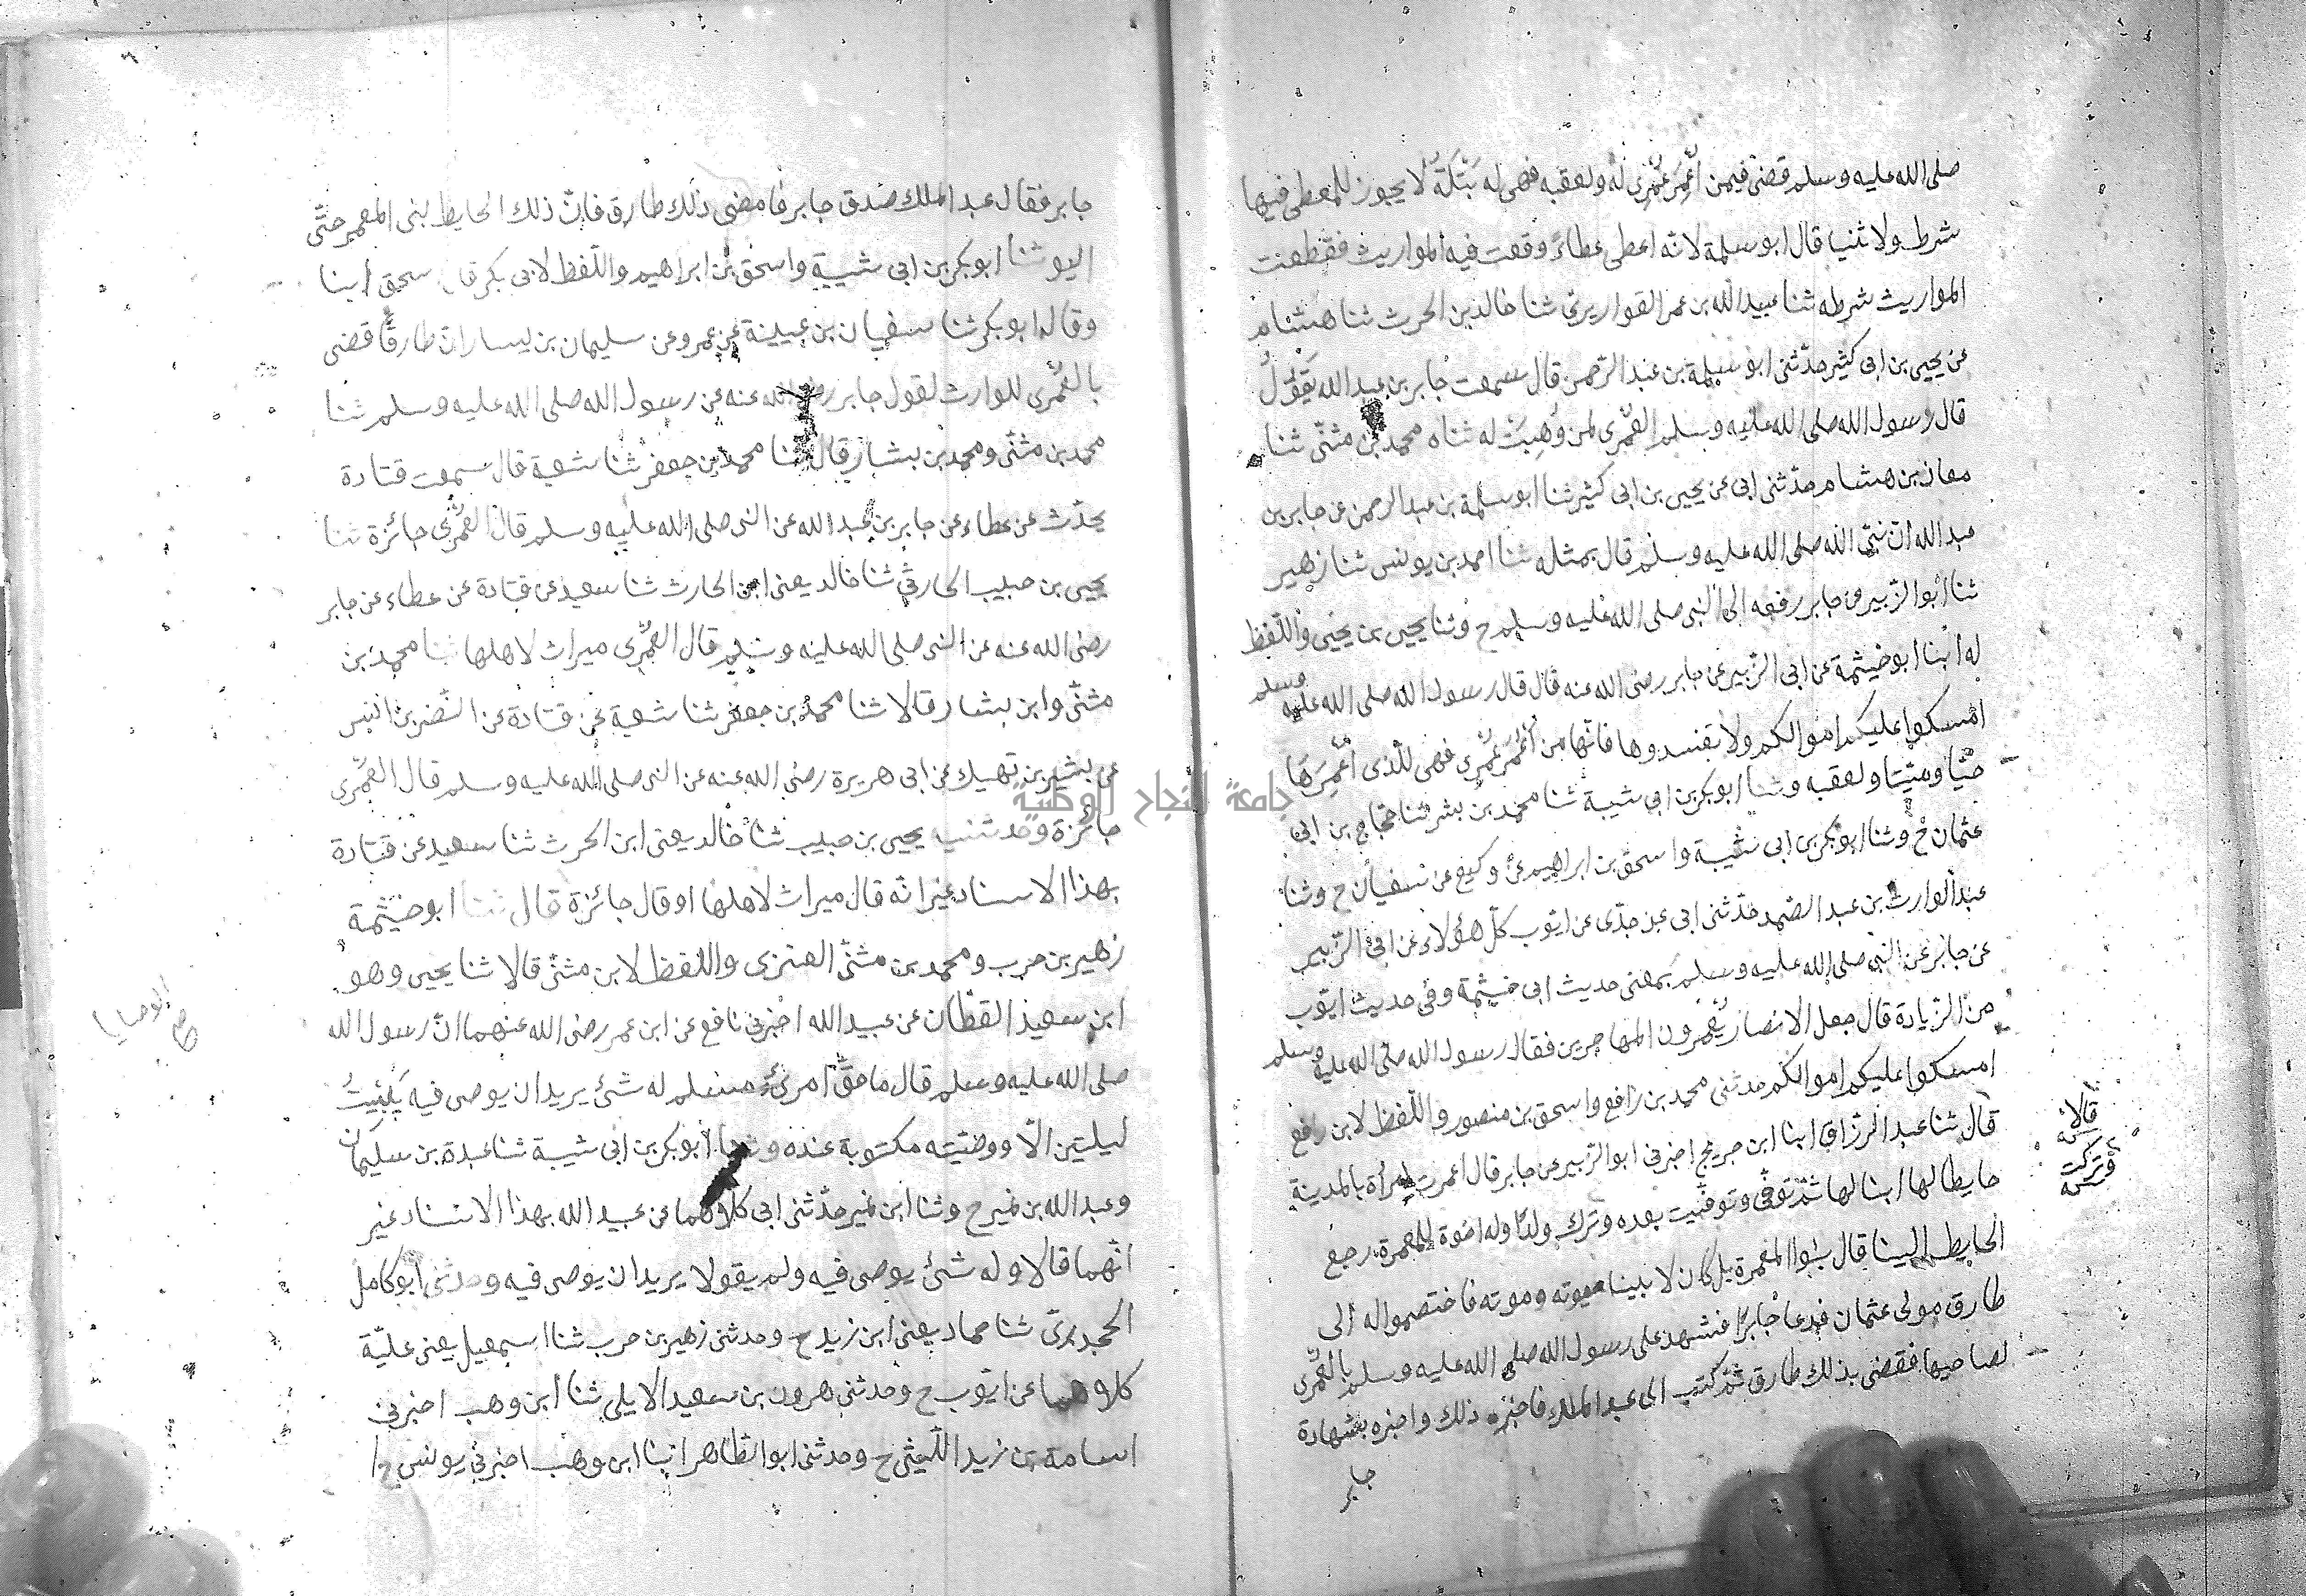 صلى الله عليه وسلم قضى فيمن أُعْمِرَ عُمْرى له ولعقبه فهى له بَتْلَةً لا يجوز للمعطى فيها
شرط ولا ثنيا قال ابو سلمة لانه اعطى عطاءً وقعت فيه المواريث فقطعت
المواريث شرطه ثنا عبيد الله بن عمر القواريرى ثنا خالد بن الحرث ثنا هشام
عن يحيى بن ابى كثير حدّثنى ابو سلمة بن عبد الرّحمن قال سمعت جابر بن عبد الله يَقُولُ
قال رسول الله صلى الله عليه وسلم العُمْرى لمن وُهِبَتْ له ثناه محمد بن مثنّى ثنا
معاذ بن هشام حدّثنى ابى عن يحيى بن ابى كثير ثنا ابو سلمة بن عبد الرحمن عن جابر بن
عبد الله انّ نبىّ الله صلى الله عليه وسلم قال بمثله ثنا احمد بن يونس ثنا زهير
ثنا أبو الزّبير عن جابر رفعه الى النبى صلى الله عليه وسلم ح وثنا يحيى بن يحيى واللّفظ
له أبنا ابو خيثمة عن ابى الزّبير عن جابر رضى الله عنه قال قال رسول الله صلى الله عليه وسلم
امسكوا عليكم اموالكم ولا تفسدوها فانّها من أَعْمَرَ عُمْرى فهى للّذى أُعْمِرَهَا
حيّا وميّتا ولعقبه وثنا ابو بكر بن ابى شيبة ثنا محمد بن بشر ثنا حجّاج بن ابى
عثمان ح وثنا ابو بكر بن ابى شيبة واسحق بن ابراهيم عن وكيع عن سفيان ح وثنا
عبد الوارث بن عبد الصّمد حدّثنى ابى عن جدّى عن ايّوب كلّ هؤلاء عن ابى الزّبير
عن جابر عن النبى صلى الله عليه وسلم بمعنى حديث ابى خيثمة وفى حديث ايّوب
من الزّيادة قال جعل الانصار يُعْمرون المهاجرين فقال رسول الله صلى الله عليه وسلم
امسكوا عليكم اموالكم حدثنى محمد بن رافع واسحق بن منصور واللّفظ لابن رافع
قال ثنا عبد الرزّاق ابنا ابن جريج اخبرنى ابو الزّبير عن جابر قال اعمرت امرأة بالمدينة
حايطا لها ابنا لها ثمّ توفّى وتوفّيت بعده وترك ولدًا وله اخوة للمعمرة رجع
الحايط الينا قال بنوا المعمرة بل كان لابينا حيوته وموته فاختصموا اله الى
طارق مولى عثمان فدعا جابرًا فشهد على رسول الله صلى الله عليه وسلم بالعُمْرى
لصاحبها فقضى بذلك طارق ثمّ كتب الى عبد الملك فاخبره ذلك واخبره بشهادة
جابر
قالا
وتركت
جابر فقال عبد الملك صدق جابر فامضى ذلك طارق فانّ ذلك الحايط لبنى المعمر حتّى
اليو ثنا ابو بكر بن ابى شيبة واسحق بن ابراهيم واللّفظ لابى بكر قال سحق أبنا
وقال ابو بكر ثنا سفيان بن عيينة عن عمرو عن سليمان بن يسار انّ طارقًا قضى
بالعُمْرى للوارث لقول جابر رضى الله عنه عن رسول الله صلى الله عليه وسلم ثنا
محمد بن مثنّى ومحمد بن بشار قال ثنا محمد بن جعفر ثنا شعبة قال سمعت قتادة
يحدّث عن عطاء عن جابر بن عبد الله عن النبى صلى الله عليه وسلم قال العُمْرى جائزة ثنا
يحيى بن حبيب الحارثىّ ثنا خالد يعنى ابن الحارث ثنا سعيد عن قتادة عن عطاء عن جابر
رضى الله عنه عن النبى صلى الله عليه وسلم قال العُمْرى ميراث لاهلها ثنا محمد بن
مثنّى وابن بشار قالا ثنا محمد بن جعفر ثنا شعبة عن قتادة عن النّضر بن انس
عن بشير بن نهيك عن ابى هريرة رضى الله عنه عن النبى صلى الله عليه وسلم قال العُمْرى
جائزة وحدثنيه يحيى بن حبيب ثنا خالد يعنى ابن الحرث ثنا سعيد عن قتادة
بهذا الاسناد غير انّه قال ميراث لاهلها او قال جائزة قال ثنا ابو خيثمة
زهير بن حرب ومحمد بن مثنّى العنزى واللفظ لابن مثنّى قالا ثنا يحيى وهو
ابن سعيد القطّان عن عبيد الله اخبرنى نافع عن ابن عمر رضى الله عنهما انّ رسول الله
صلى الله عليه وسلم قال ما حقّ امرئ مسلم له شئ يريد ان يوصى فيه يَبِيْتُ
ليلتين الّا ووصّيته مكتوبة عنده وثنا ابو بكر بن ابى شيبة ثنا عبدة بن سليمان
وعبد الله بن نمير ح وثنا ابن نمير حدّثنى ابى كلاهما عن عبيد الله بهذا الاسناد غير
انّهما قالا وله شئ يوصى فيه ولم يقولا يريد ان يوصى فيه وحدثنى ابو كامل
الجحدرىّ ثنا حماد يعنى ابن زيد ح وحدثنى زهير بن حرب ثنا اسمعيل يعنى عليّة
كلاهما عن ايّوب ح وحدثنى هرون بن سعيد الايلى ثنا ابن وهب اخبرنى
اسامة بن زيد اللّيثى ح وحدثنى ابو الطّاهر انبنا ابن وهب اخبرنى يونس ح
الوصايا
جامعة النجاح الوطنية